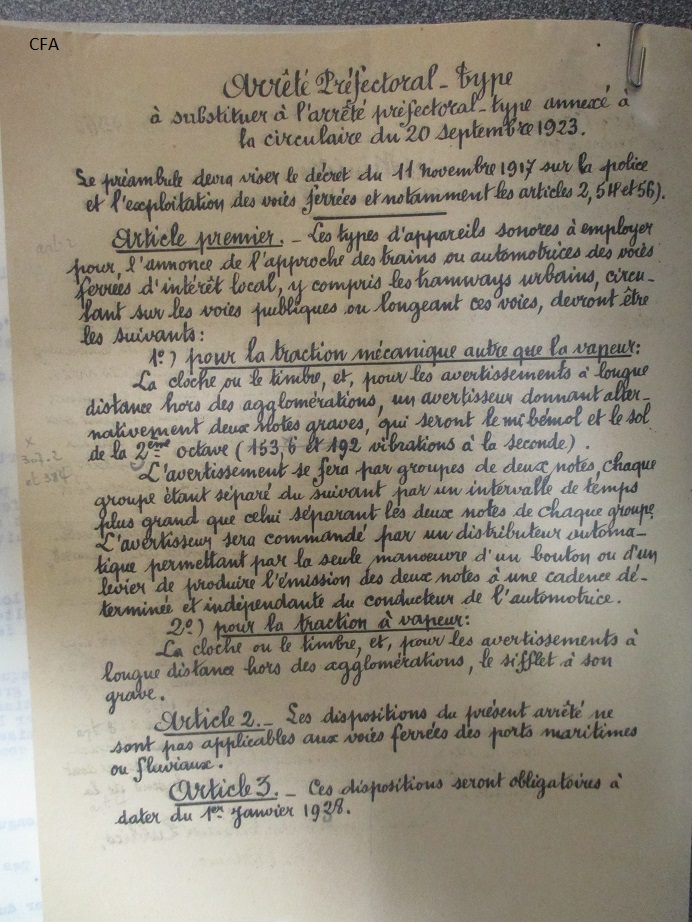 CFA
Arrêté Préfectoral-type
à substituer à l'arrêté préfectoral-type annexé à
la circulaire du 20 septembre 1923.
Le préambule devra viser le décret du 11 novembre 1917 sur la police
et l'exploitation des voies ferrées et notamment les articles 2, 54 et 56).
Article premier._ Les types d'appareils sonores à employer
pour, l'annonce de l'approche des trains ou automotrices des voies
ferrées d'intérêt local, y compris les tramways urbains, circu-
lant sur les voies publiques ou longeant ces voies, devront être
les suivants:
1º) pour la traction mécanique autre que la vapeur:
La cloche ou le timbre, et, pour les avertissements à longue
distance hors des agglomérations, un avertisseur donnant alter-
nativement deux notes graves, qui seront le mi bémol et le sol
de la 2ème octave (153,6 et 192 vibrations à la seconde).
L'avertissement se fera par groupes de deux notes, chaque
groupe étant séparé du suivant par un intervalle de temps
plus grand que celui séparant les deux notes de chaque groupe.
L'avertisseur sera commandé par un distributeur automa-
tique permettant par la seule manœuvre d'un bouton ou d'un
levier de produire l'émission des deux notes à une cadence dé-
terminée et indépendante du conducteur de l'automotrice.
2º) pour la traction à vapeur:
La cloche ou le timbre, et, pour les avertissements à
longue distance hors des agglomérations, le sifflet à son
grave.
Article 2._ Les dispositions du présent arrêté ne
sont pas applicables aux voies ferrées des ports maritimes
ou fluviaux.
Article 3._ Ces dispositions seront obligatoires à
dater du 1er Janvier 1928.